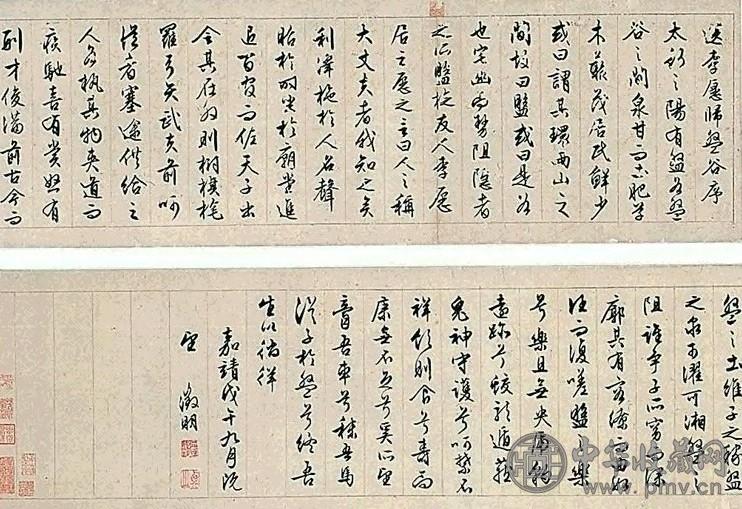 送李愿歸盤谷序
太行之陽有盤谷盤
谷之間泉甘而土肥草
木藂茂居民鮮少
或曰謂其環兩山之
間故曰盤或曰是谷
也宅幽而勢阻隱者
之所盤旋友人李愿
居之愿之言曰人之稱
大丈夫者我知之矣
利澤施於人名聲
昭於時坐於廟堂進
退百官而佐天子出
令其在外則樹旗旄
羅弓矢武夫前呵
從者塞途供給之
人各執其物夾道而
疾馳喜有賞怒有
刑才俊滿前古今而
盤之土維子之稼盤
之泉可濯可湘盤之
阻誰爭子所窈而深
廓其有容繚而曲如
往而復嗟盤樂
兮樂且無央虎豹
遠跡兮蛟龍遁藏
鬼神守護兮呵禁不
祥飲則食兮壽而
康無不足兮奚所望
膏吾車兮秣吾馬
從子於盤兮終吾
生以徜徉
嘉靖戊午九月既
望 徵明
中华收藏网
www.pmv.cn